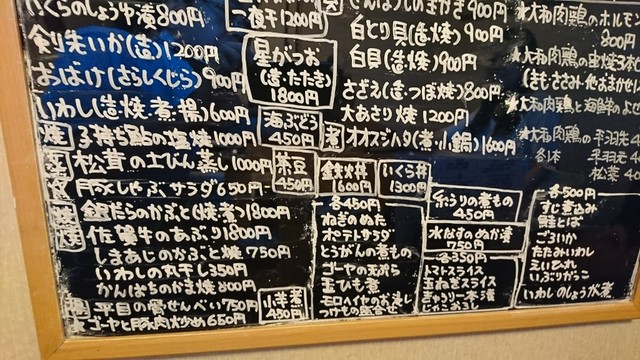 いくらのしょうゆ漬800円
一夜干1200円
900円
白とり貝(造・焼)900円
白貝(造・焼)900円
剣先いか(造)1200円
おばけ(さらしくじら)900円
星がつお
(造・たたき)
1800円
さざえ(造・つぼ焼)800円
大あさり焼 1200円
いわし(造・焼・煮・揚)600円
子持ち鮎の塩焼1000円
海ぶどう
450円
煮 オオスジハタ(煮・小鍋)1600円
松茸の土びん蒸し1000円
茶豆
450円
鉄火丼
1600円
いくら丼
1300円
豚しゃぶサラダ650円
焼 銀だらのかぶと(焼・煮)1800円
焼 佐賀牛のあぶり1800円
しまあじのかぶと焼 750円
いわしの丸干し350円
かんぱちのかま焼800円
平目の骨せんべい750円
★ゴーヤと豚肉炒め650円
小芋煮
450円
各450円
ねぎのぬた
ポテトサラダ
とうがんの煮もの
ゴーヤの天ぷら
玉ひも煮
モロヘイヤのお浸し
つけもの盛合せ
糸うりの煮もの
450円
水なすのぬか漬
750円
各350円
トマトスライス
玉ねぎスライス
きゅうり一本漬
じゃこおろし
★大和肉鶏のホルモン
800円
★大和肉鶏の串焼3本
(きも・ささみ・他おまかせ)
★大和肉鶏と海鮮の
★大和肉鶏の平羽先
各1本
平羽元
松葉
各500円
すじ煮込み
鮭とば
ごろいか
たたみいわし
えいひれ
いぶりがっこ
いわしのしょうが煮